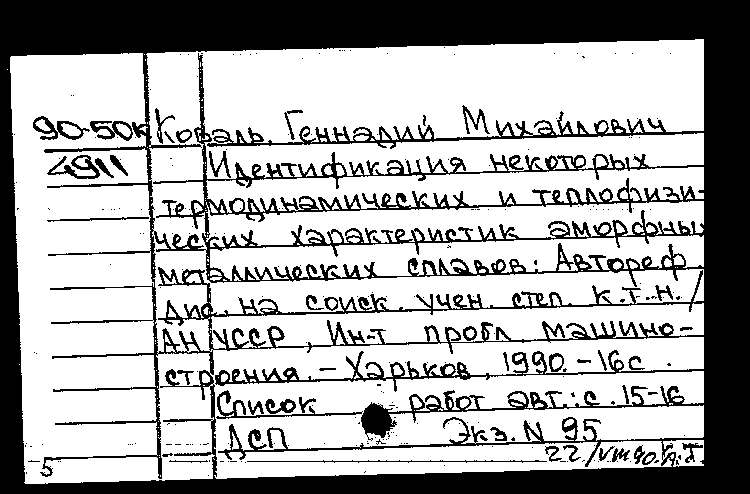 90-50к Коваль, Геннадий Михайлович
4911 Идентификация некоторых
термодинамических и теплофизи-
ческих характеристик аморфных
металлических сплавов: Автореф.
Дис. на соиск. учен. степ. к.т.н./
АН УССР, Ин-т пробл. машино-
строения. - Харьков, 1990. - 16с.
Список работ авт.: с. 15-16
ДСП Экз. N 95
5 22/VIII90.